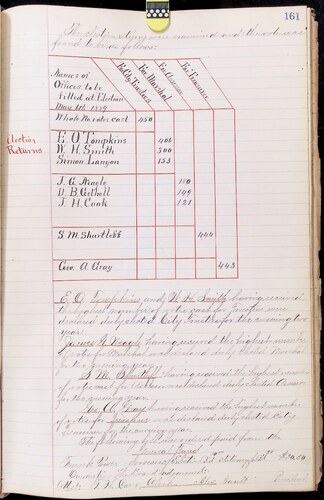 161
The election returns were examined and the vote was
found to be as follows:
Names of
Offices to be
filled at Election
May 4th 1889
For City Trustees
For Marshal
For Assessor
For Treasurer
Whole No. votes cast 450
Election
Returns
E. O. Tompkins 408
W. H. Smith 300
Simon Lanyon 153
J. G. 180
D. B. Gethall 149
J. H. Cook 121
S. M. Shurtleff 444
Geo. A. Gray 443
E. O. Tompkins and W. H. Smith having received
the highest number of votes cast for Trustees were
declared duly elected City Trustees for the ensuing two
years.
having received the highest number
of votes for Marshal was declared duly elected Marshal
for the ensuing year.
S. M. Shurtleff having received the highest number
of votes cast for Assessor was declared duly elected Assessor
for the ensuing year.
Geo. A. Gray having received the highest number
of votes for Treasurer was declared duly elected City
Treasurer for the ensuing year.
The following bill was ordered paid from the
General Fund
On motion the Board adjourned.
Attest: Clerk President